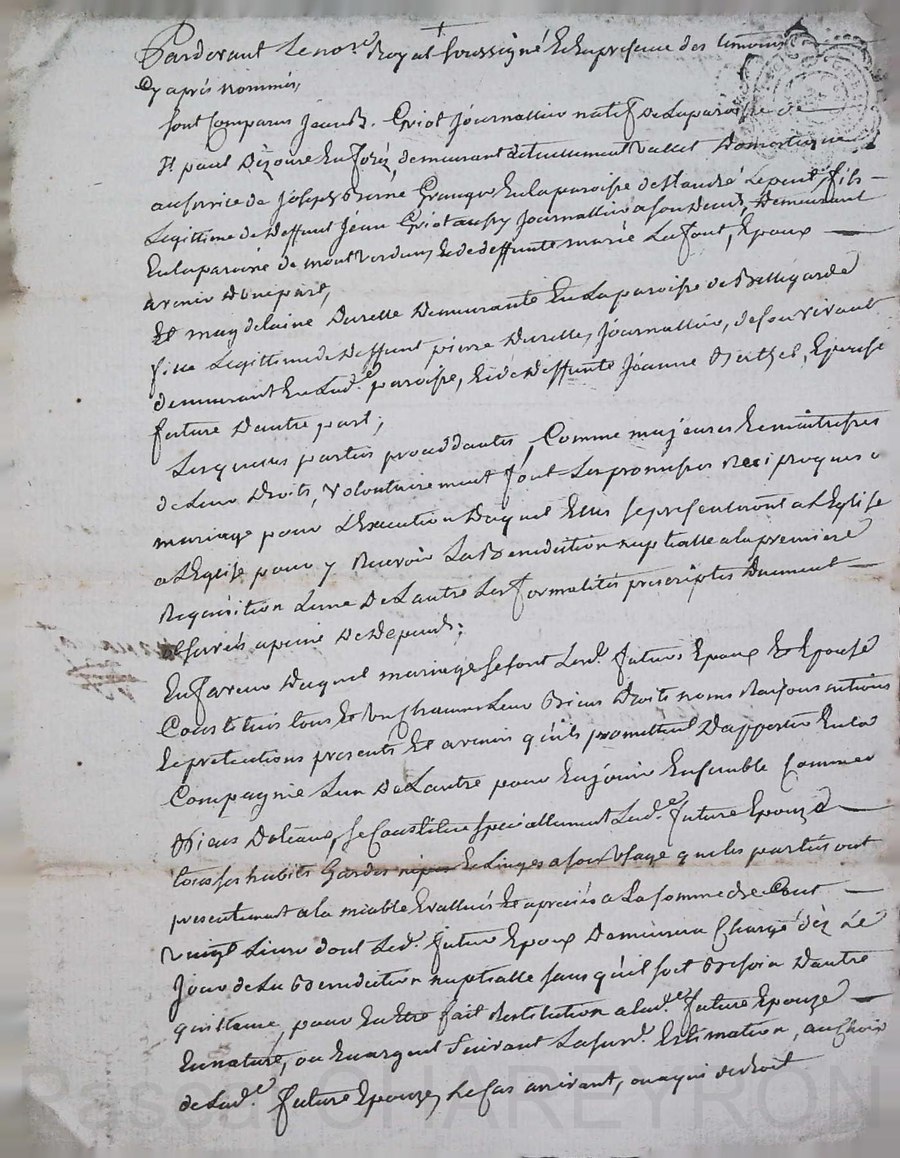 Pardevant Le no.re Royal soussigné Et En presence des temoins
Cy aprés nommés,
sont Comparus Jean B. Griot Journallier natif De La paroisse de
St paul Dézoure En foréz demeurant actuellement vallet Domestique
au service de Joseph Granger En la paroisse de St andré Le puis, fils
Legittime de deffunt Jean Griot Journallier a son Deceds, Demeurant
En la paroisse de montverdun, Et de deffunte marie La font, Epoux
avenir D'une part,
Et magdelaine Durelle Demeurante En La paroisse de Bellegarde
fille Legittime de deffunt pierre Durelle, Journallier, de son vivant
demeurant En Lad.e paroisse, Et de deffunte Jeanne Berthel, Epouse
future D'autre part;
Lesquelles parties proceddantes, Comme majeures Et maitresses
de Leurs Droits, volontairement font Les promesses Reciproques
mariage pour L'Execution Duquel Elles se presenteront a L'Eglise
a L'Eglise pour y Recevoir La Benediction nuptialle a la premiere
Requisition L'une De L'autre Les formalités prescriptes Dument
observées a peine De Depends;
En faveur Duquel mariage se sont Lesd. futurs Epoux Et Epouse
Constitués tous Et Un Chacuns Leurs Biens Droits noms Raisons actions
Et pretentions presents Et avenir qu'ils promettent D'apporter En La
Compagnie L'un De L'autre pour En jouir Ensemble Comme
Biens Dotaux, se Constitue speciallement Lad.e future Epouze
tous ses habits Gardes Et Linges a son Usage que les parties ont
presentement a la miable Evallués Et apreciés a La somme de Cent
vingt Livres dont Led. futur Epoux Demeurera Chargé déz Le
Jour de La Benediction nuptialle sans qu'il soit Besoin D'autre
quittance, pour En Etre fait Restitution a Lad.e future Epouze
En nature, ou En argent suivant La sus.d. Estimation, au Choix
de Lad.e future Epouze, Le Cas arrivant, ou a qui de droit
Pascal CHAREYRON